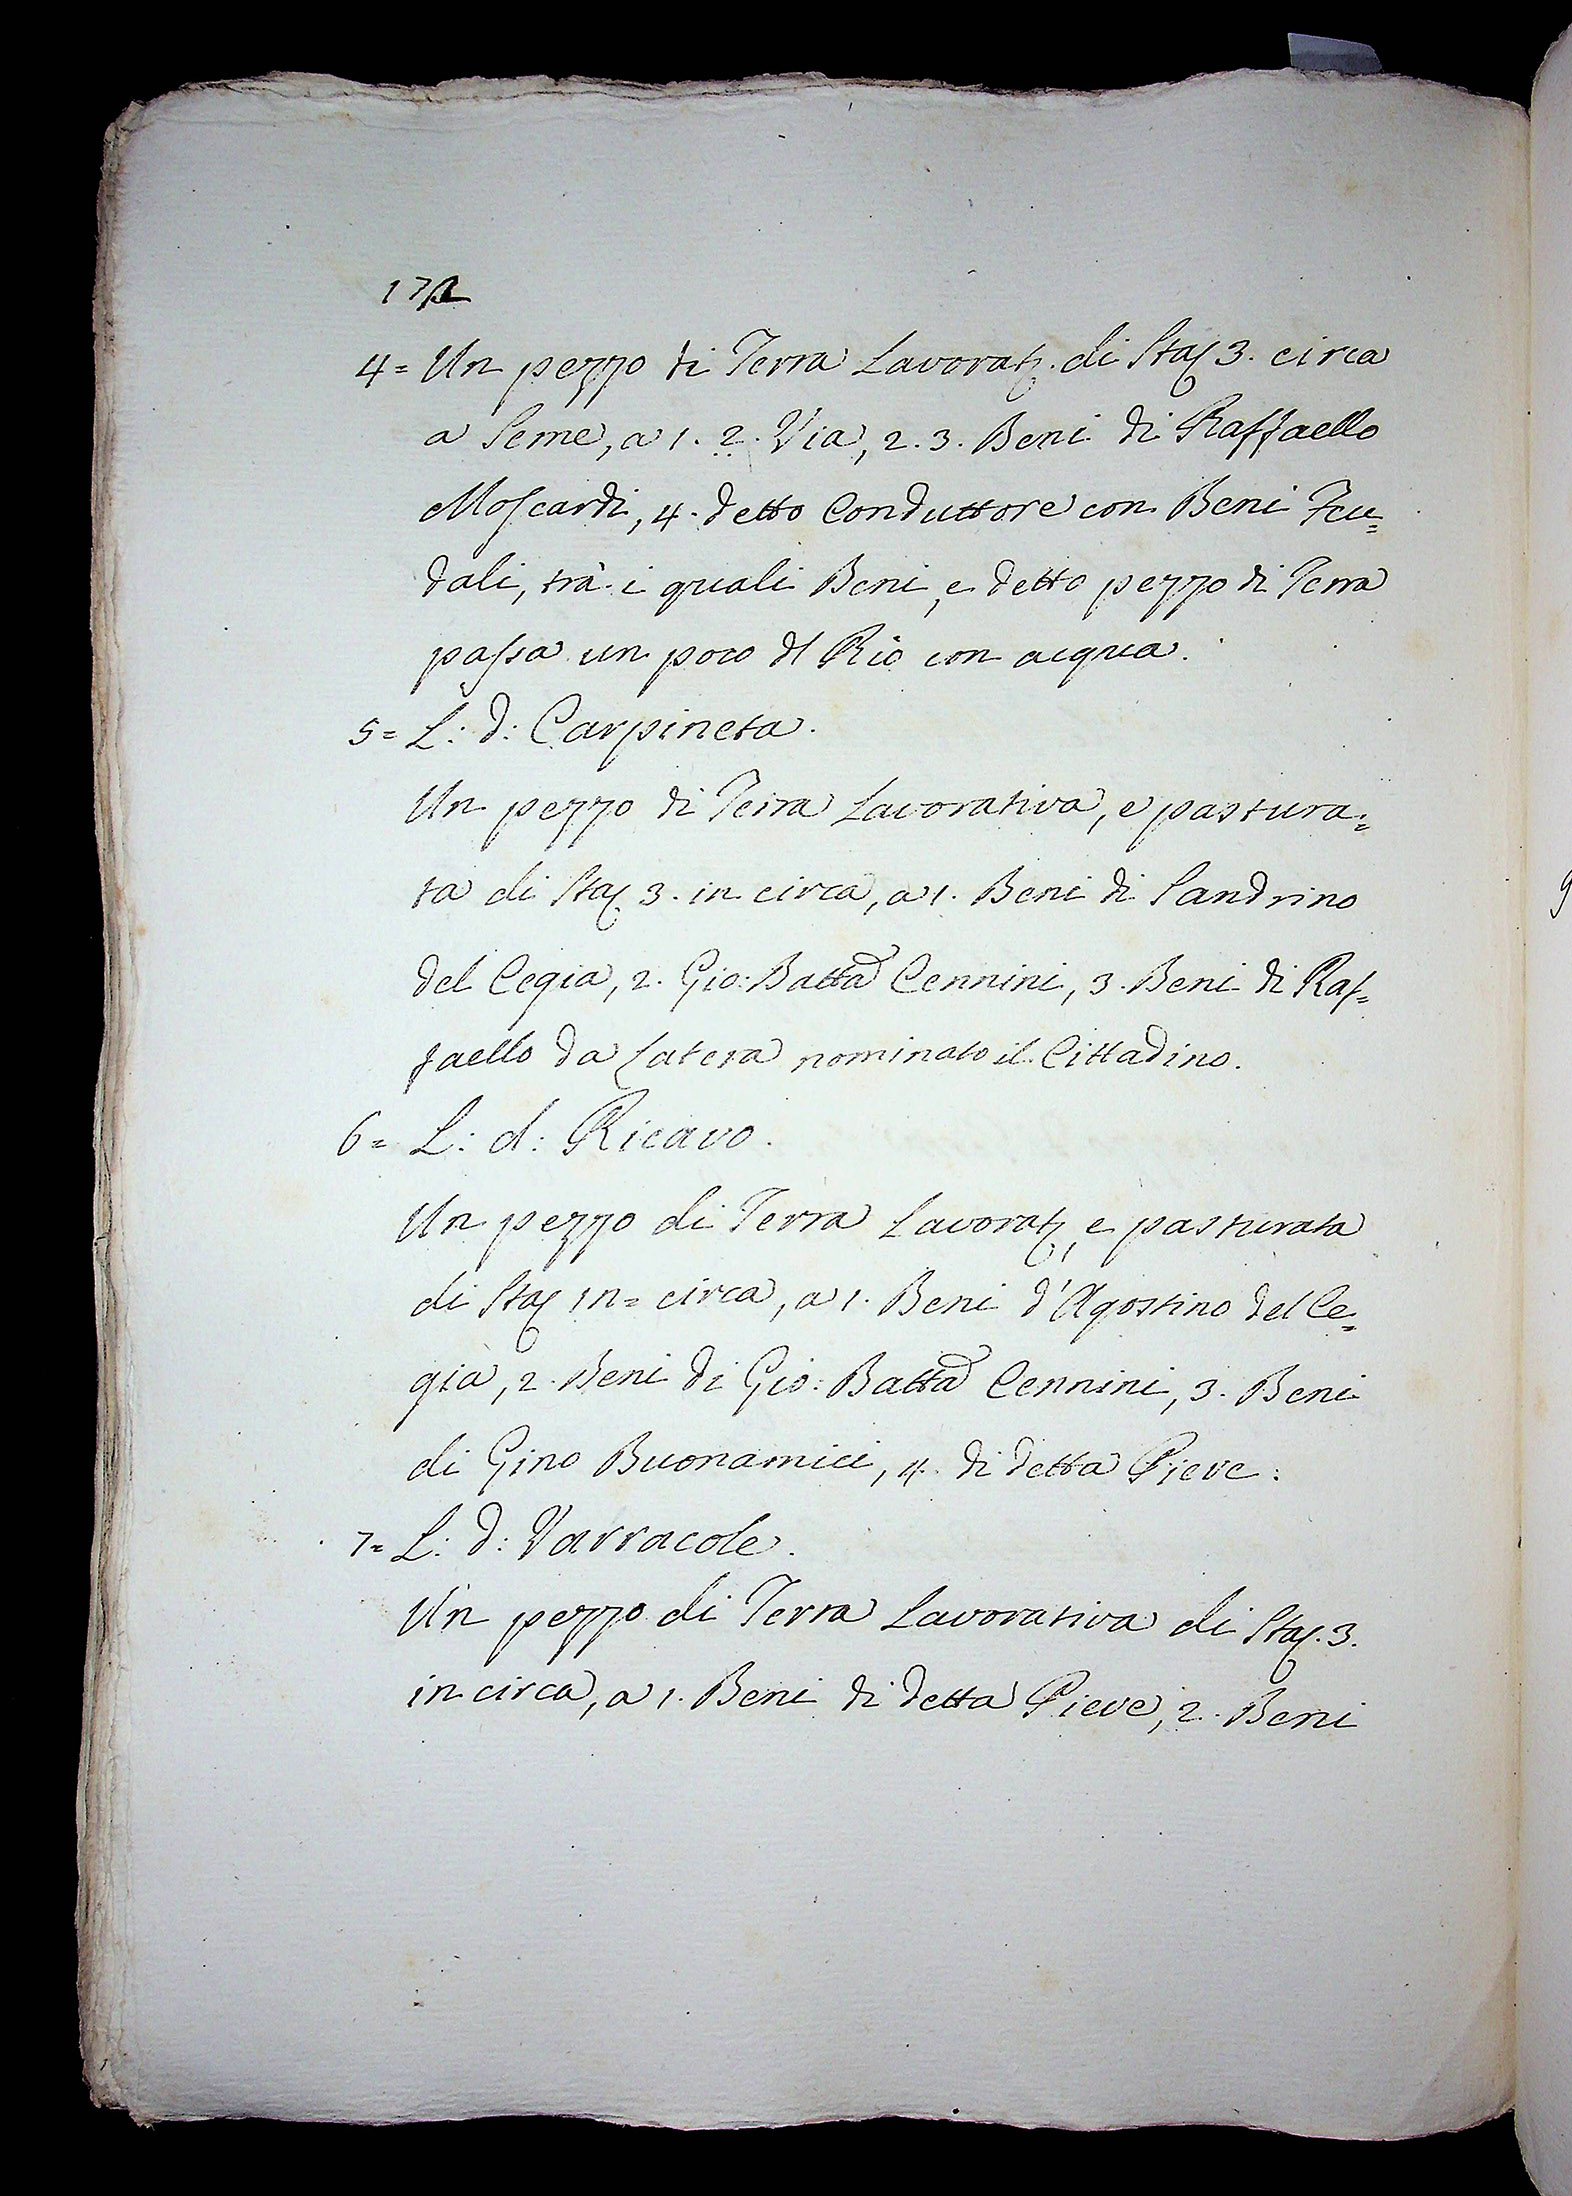 172
4= Un pezzo di Terra Lavorat. di Staj 3. circa
a Seme, a 1. 2. Via, 2. 3. Beni di Raffaello
Moscardi, 4. detto Conduttore con Beni Feu=
dali, trà i quali Beni, e detto pezzo di Terra
passa un poco dl Rio con acqua.
5= L: d: Carpineta.
Un pezzo di Terra Lavorativa, e pastura=
ta di Staj 3. in circa, a 1. Beni di Sandrino
del Cegia, 2. Gio: Batta Cennini, 3. Beni di Raf=
faello da Latera nominato il Cittadino.
6= L: d: Ricavo.
Un pezzo di Terra Lavorat, e pasturata
di Staj in= circa, a 1. Beni d'Agostino del Ce=
gia, 2. Beni di Gio: Batta Cennini, 3. Beni
di Gino Buonamici, 4. di detta Pieve:
7= L: d: Varracole.
Un pezzo di Terra Lavorativa di Staj. 3.
in circa, a 1. Beni di detta Pieve, 2. Beni